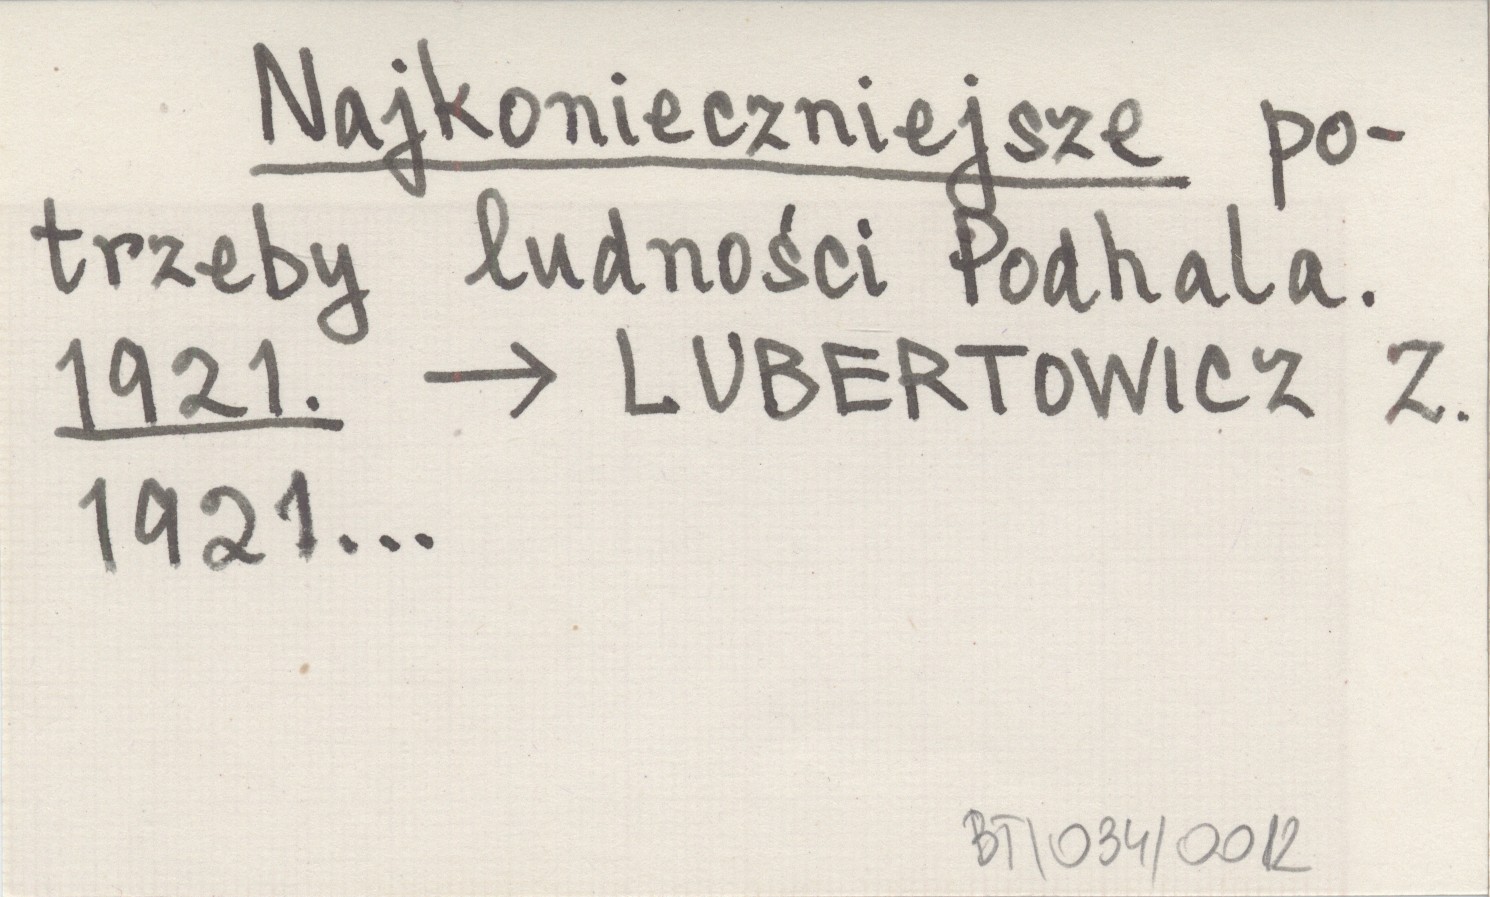 Najkonieczniejsze po-
trzeby ludności Podhala.
1921. → LUBERTOWICZ Z.
1921...
BT\034/0012